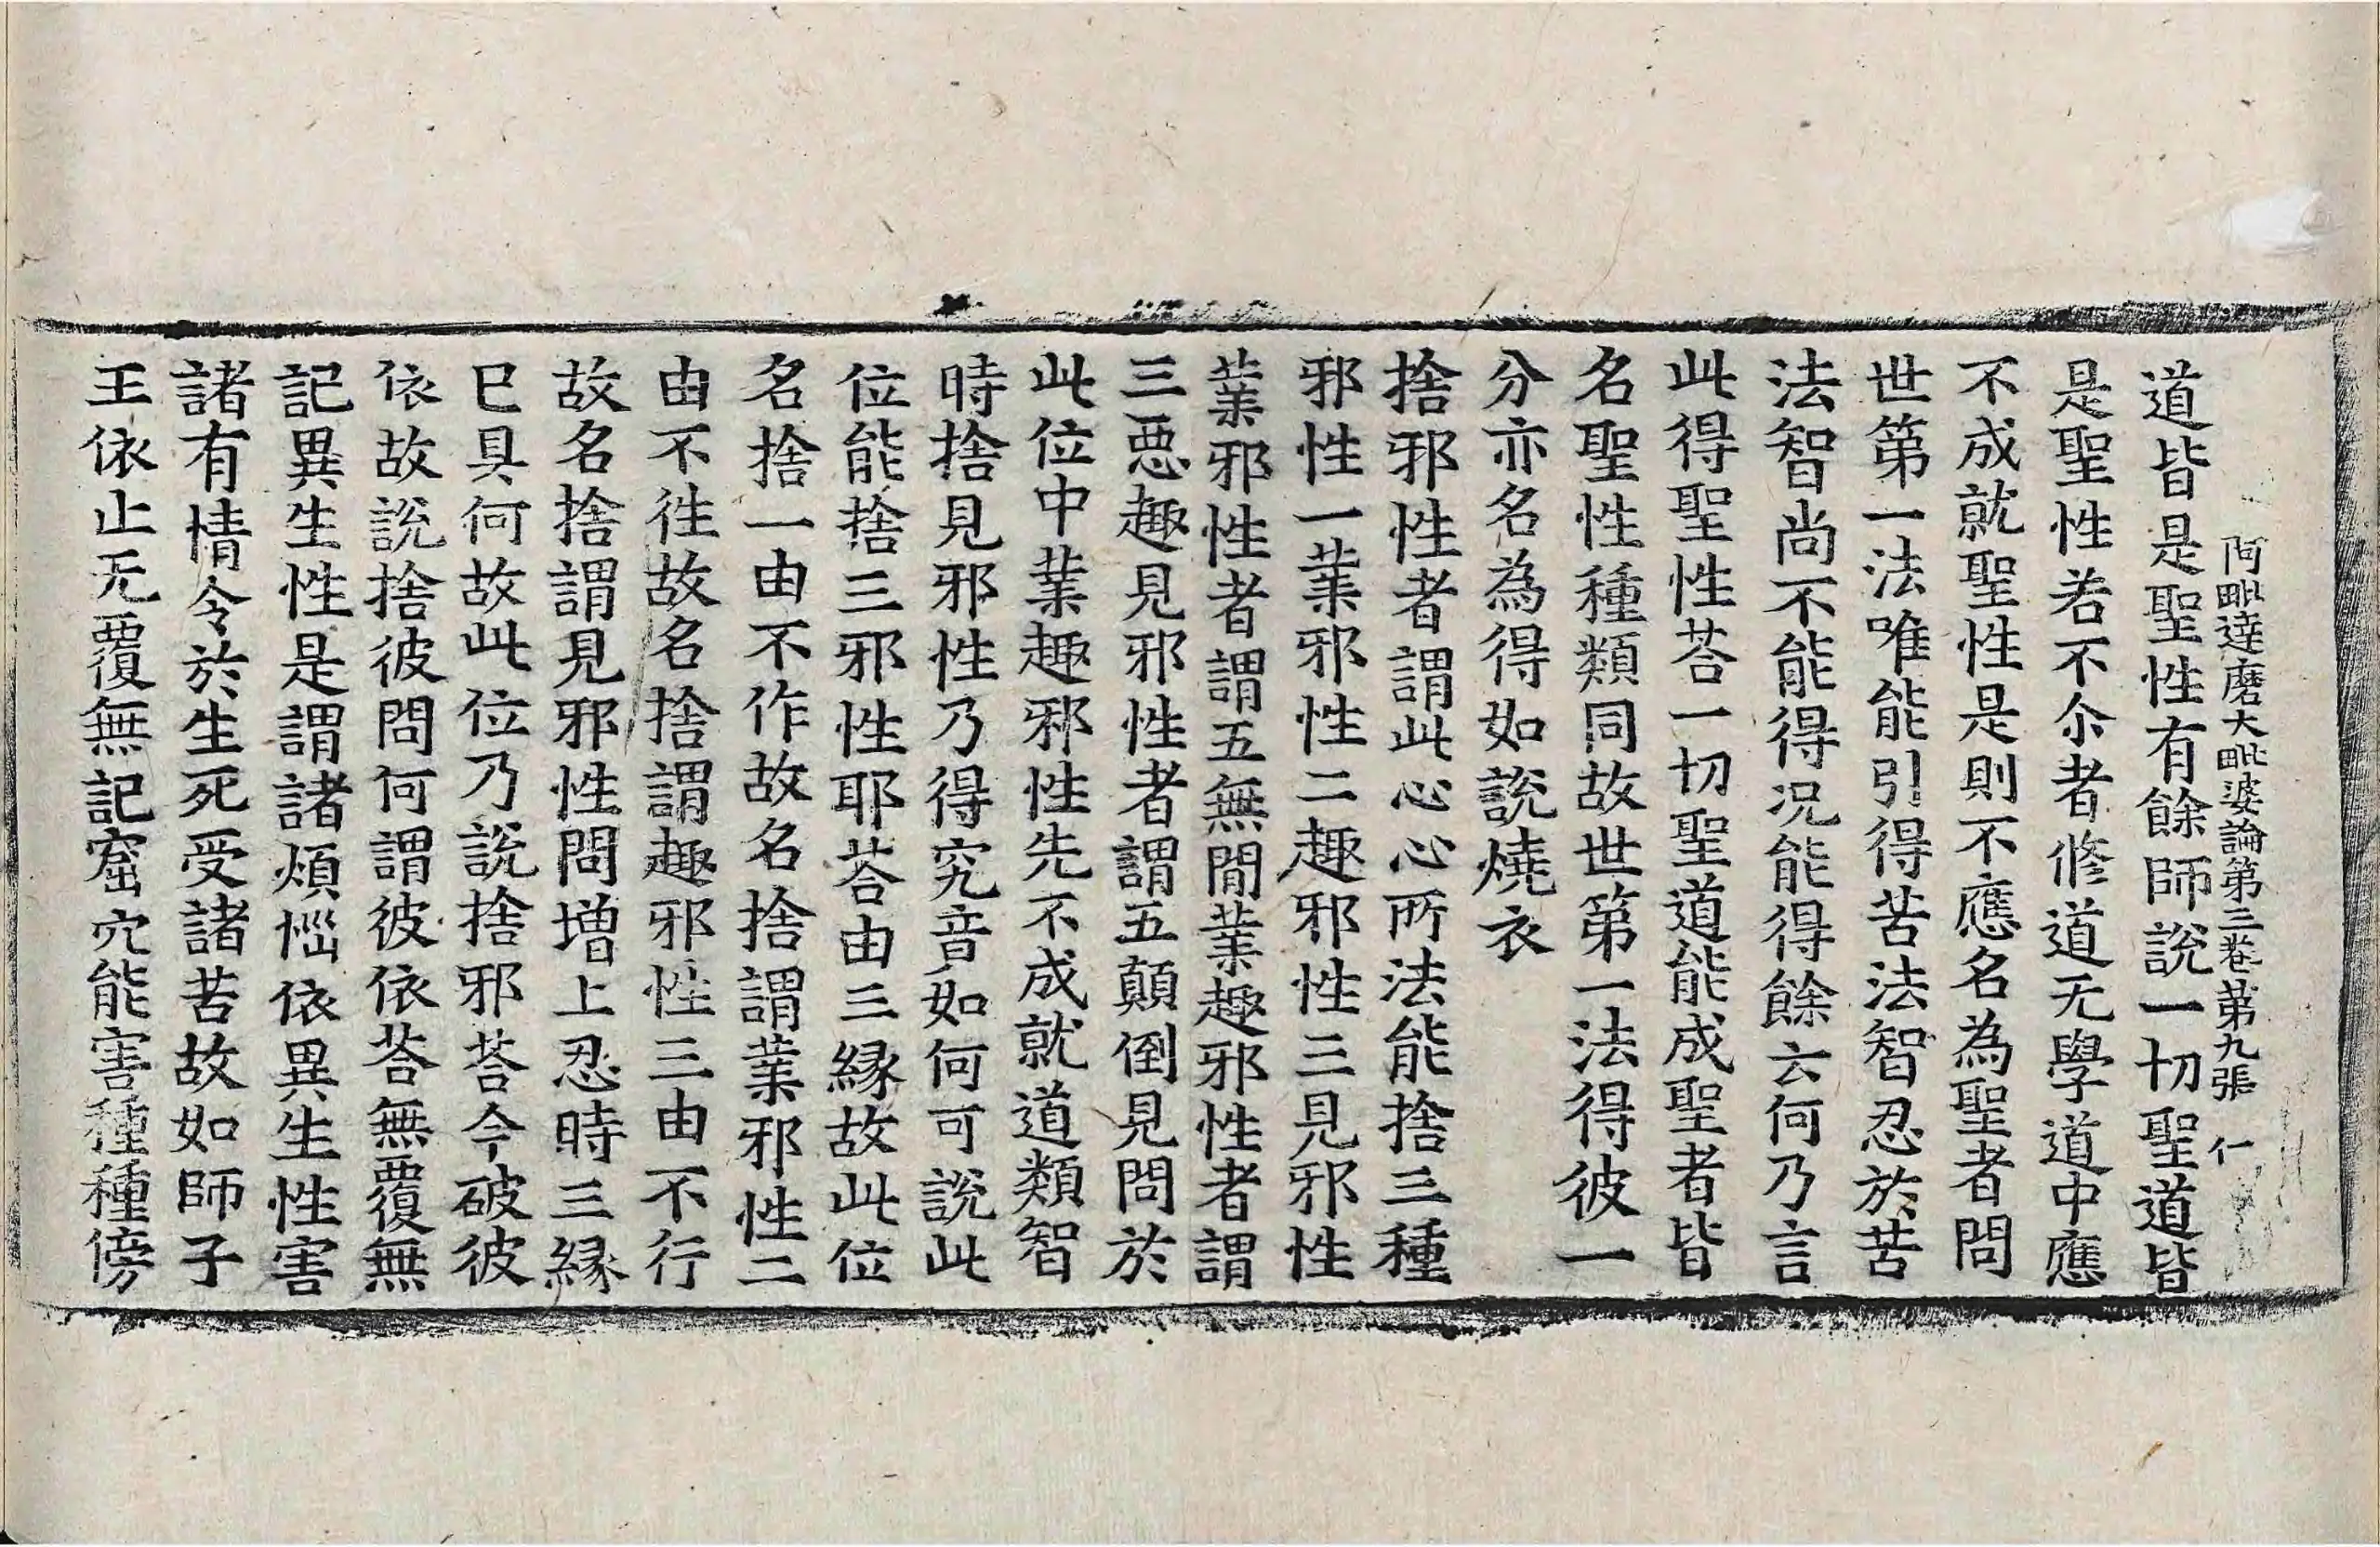 阿毗達磨大毗婆論第三卷 第九張 仁
道皆是聖性有餘師說一切聖道皆
是聖性若不尒者修道无學道中應
不成就聖性是則不應名為聖者問
世第一法唯能引得苦法智忍於苦
法智尚不能得况能得餘云何乃言
此得聖性荅一切聖道能成聖者皆
名聖性種類同故世第一法得彼一
分亦名為得如說燒衣
捨邪性者謂此心心所法能捨三種
邪性一業邪性二趣邪性三見邪性
業邪性者謂五無間業趣邪性者謂
三惡趣見邪性者謂五顛倒見問於
此位中業趣邪性先不成就道類智
時捨見邪性乃得究音如何可說此
位能捨三邪性耶荅由三緣故此位
名捨一由不作故名捨謂業邪性二
由不徃故名捨謂趣邪性三由不行
故名捨謂見邪性問增上忍時三緣
巳具何故此位乃說捨邪荅今破彼
依故說捨彼問何謂彼依荅無覆無
記異生性是謂諸煩惱依異生性害
諸有情令於生死受諸苦故如師子
王依止无覆無記窟穴能害種種傍